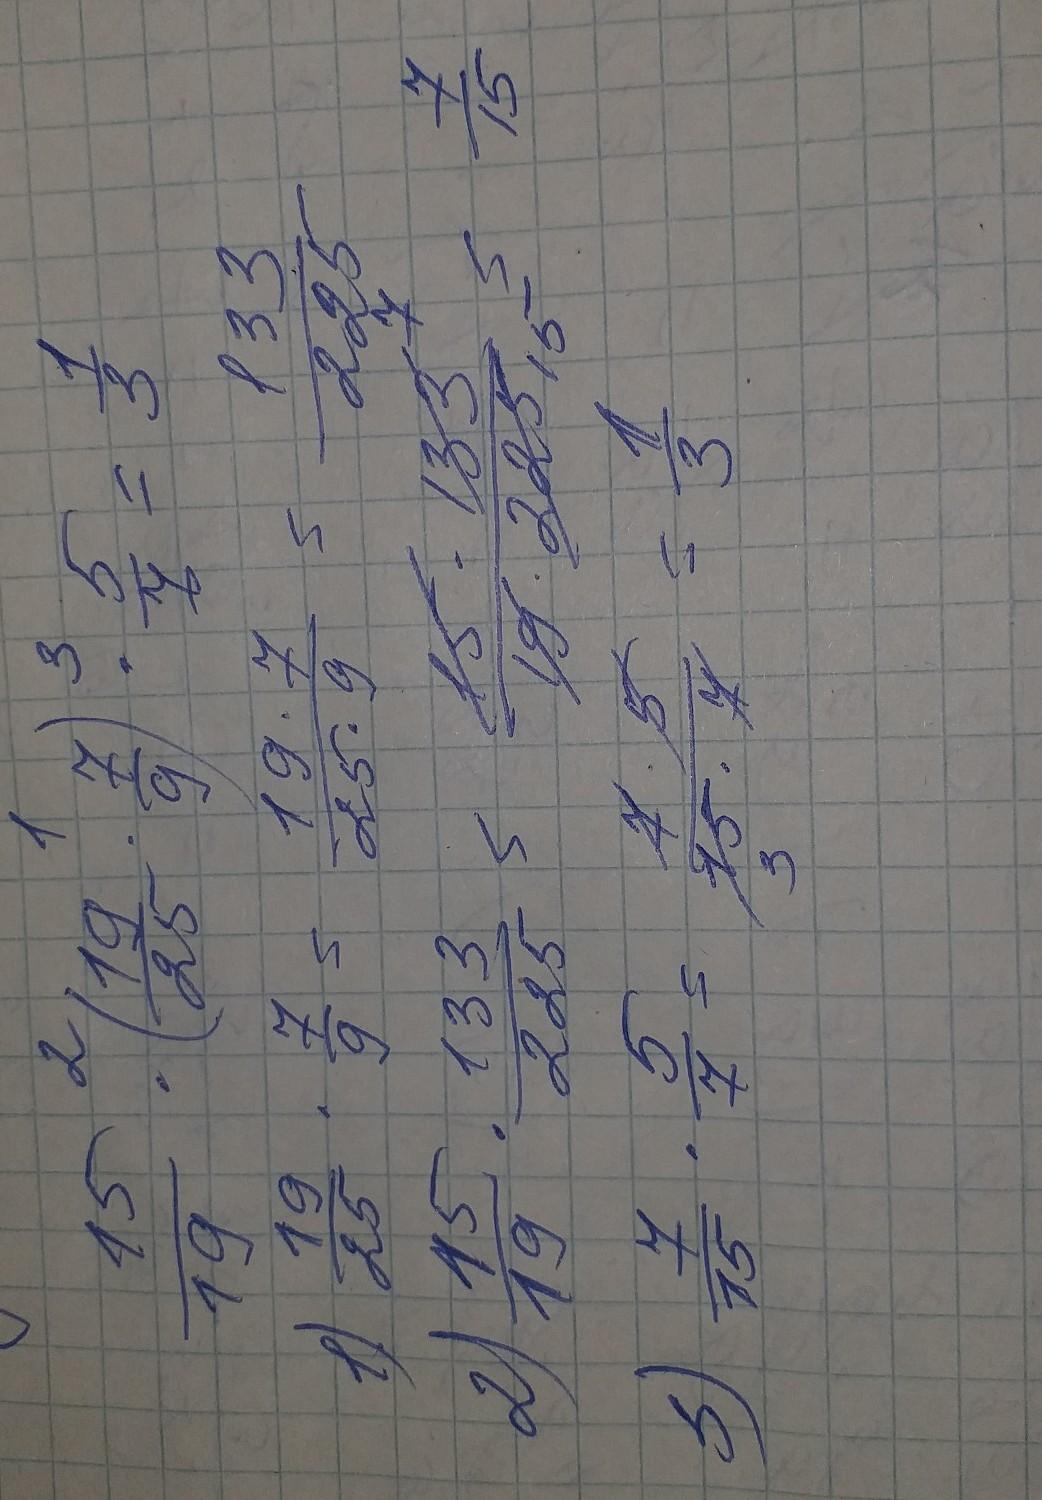 2 1 3
15/19 · (19/25 · 7/9) · 5/7 = 1/3
1) 19/25 · 7/9 = 19·7/25·9 = 133/225
2) 15/19 · 133/225 = 15·133 7/19·225 15 = 7/15
3) 7/15 · 5/7 = 7·5/15·7 3 = 1/3